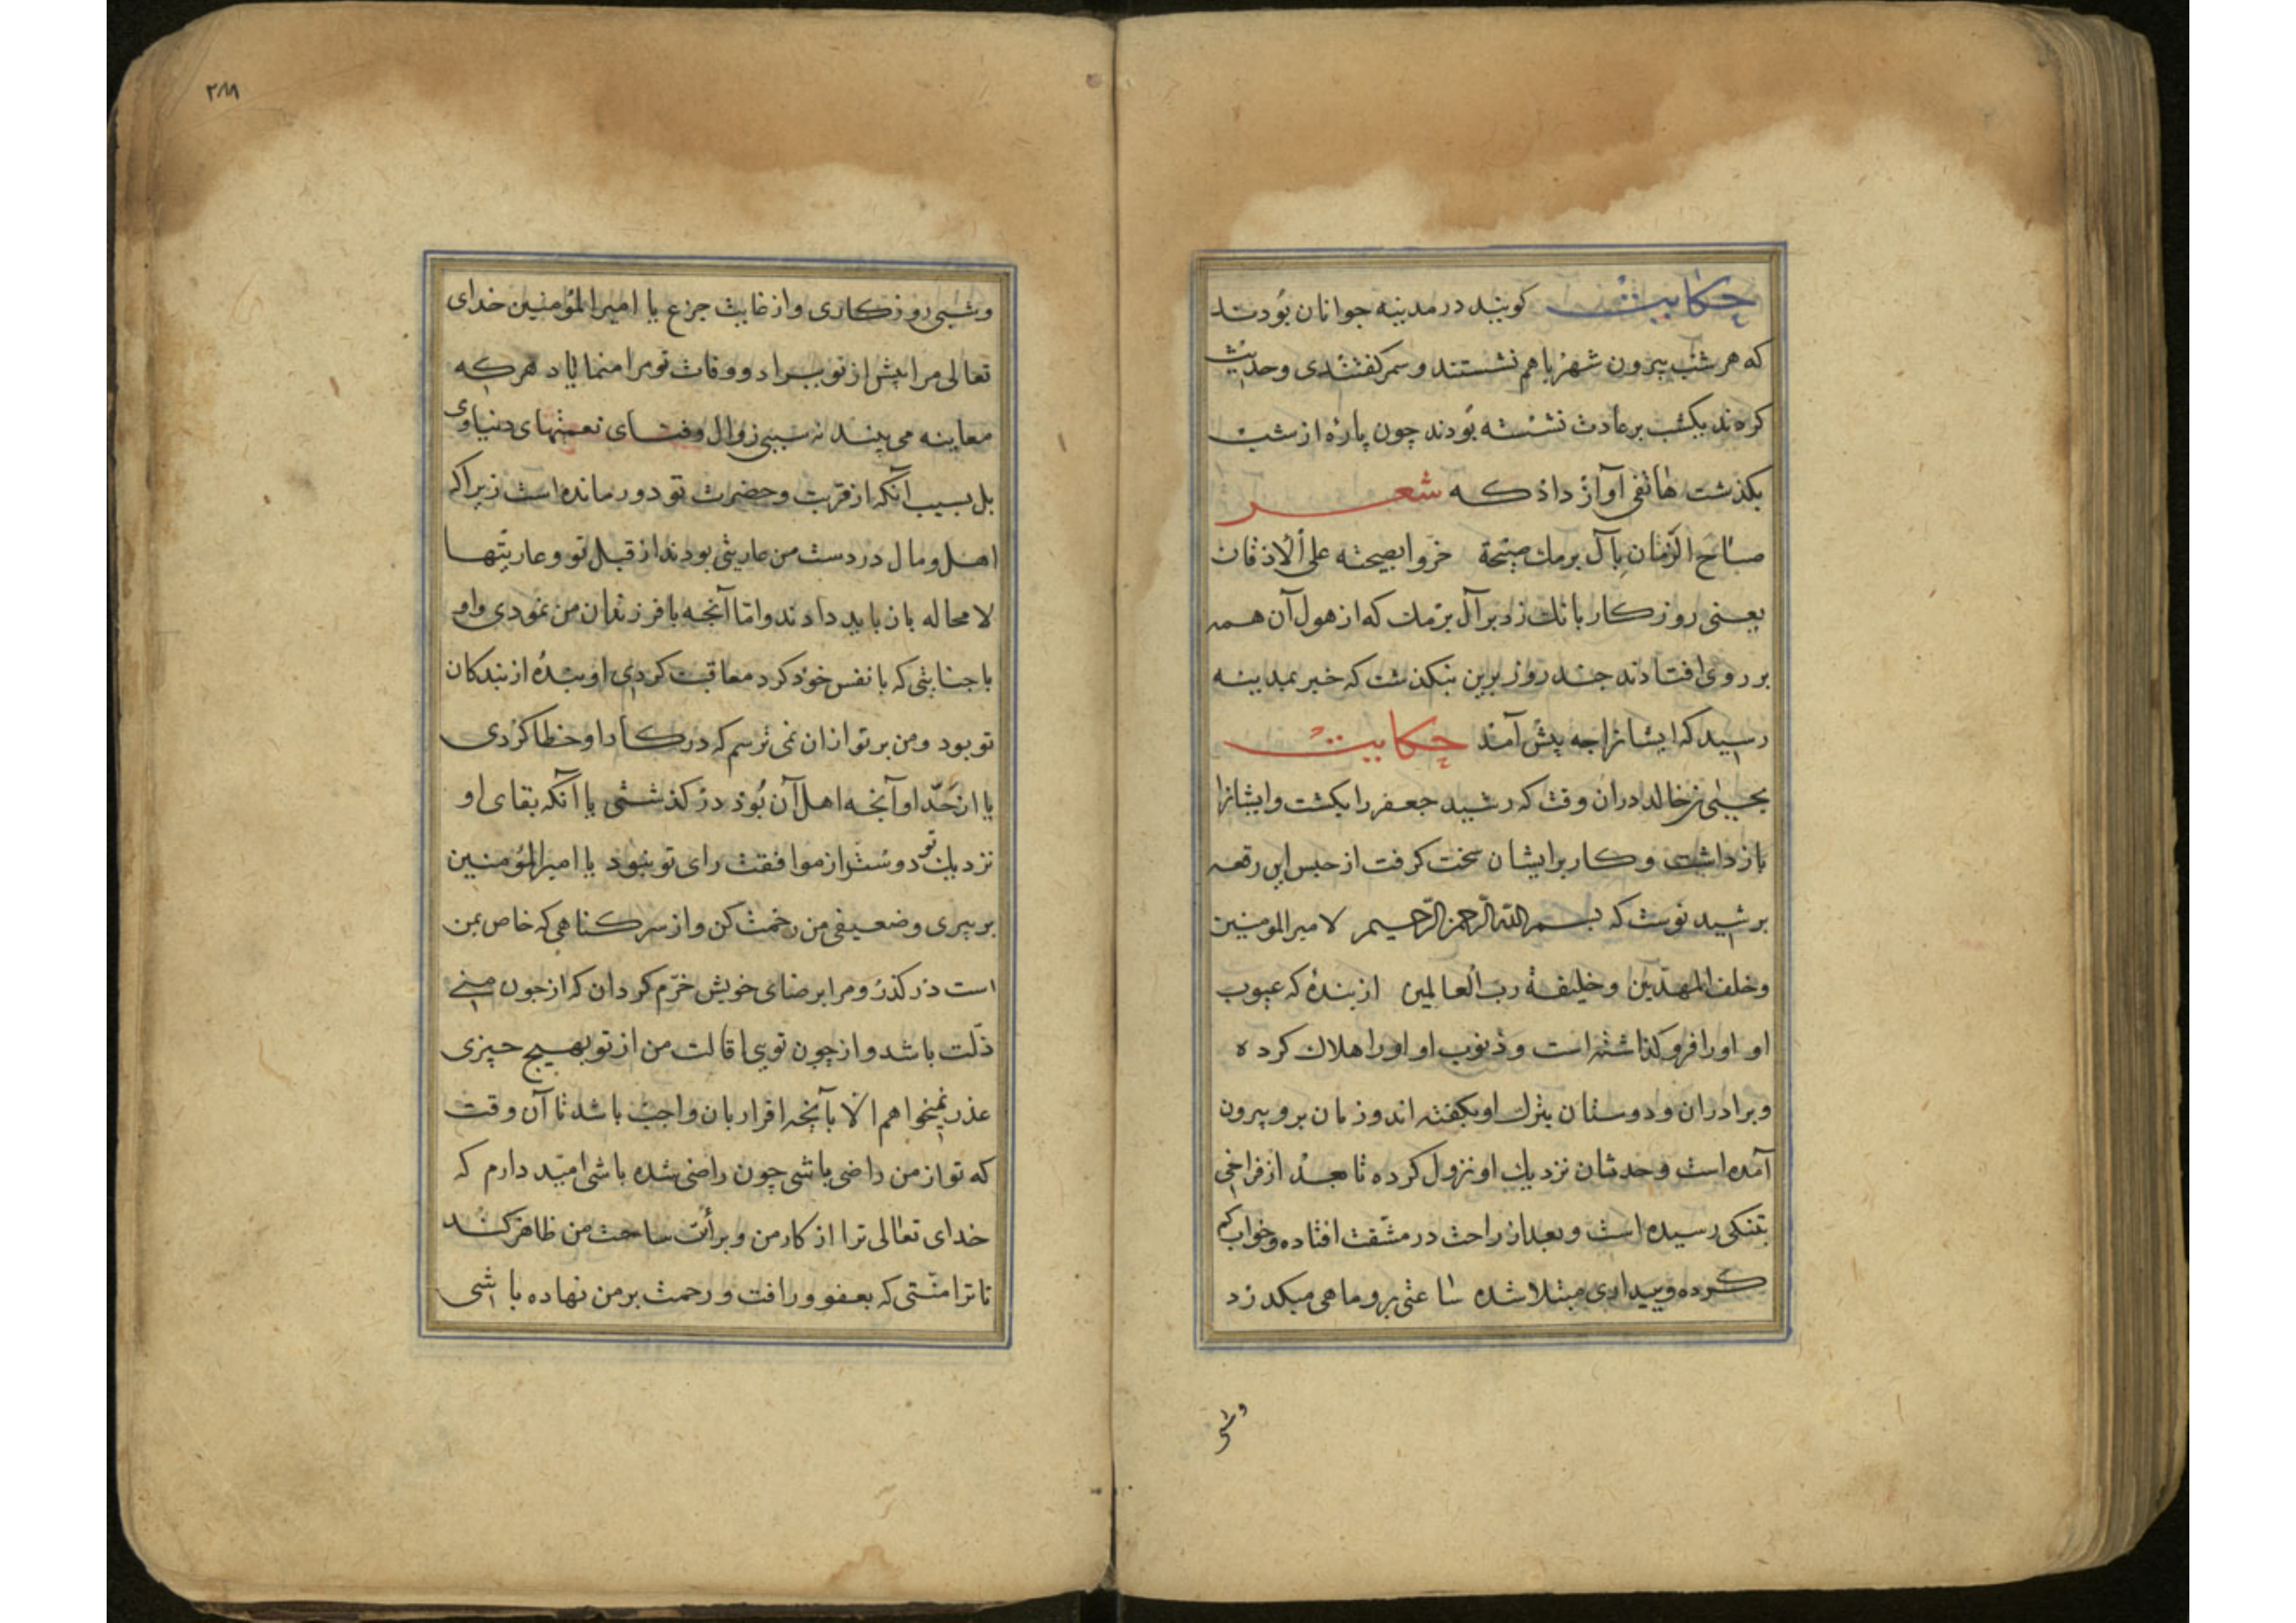 حکایت کویند در مدینه جوانان بودند
که هر شب بیرون شهر با هم نشستند و سمر کفتندی و حدیث
کردند یکشب بر عادت نشسته بودند چون پاره از شب
بکذشت هاتفی آواز داد که شعر
صاح الزمان بآل برمك صیحة خروا بصیحته علی الاذقان
یعنی روزکار بانك زد بر آل برمك که از هول آن همه
بر روی افتادند چند روز برین بنکذشت که خبر بمدینه
رسید که ایشانرا چه پیش آمد حکایت
یحیی بن خالد دران وقت که رشید جعفر را بکشت و ایشانرا
باز داشت و کار بر ایشان سخت کرفت از حبس این رقعه
برشید نوشت که بسم الله الرحمن الرحیم لامیر المومنین
و خلف المهدیین و خلیفة رب العالمین از بندهٔ که عیوب
او اورا فرو کذاشته است و ذنوب او اورا هلاك کرده
و برادران و دوستان بترك او بکفته اند و زمان برو بیرون
آمده است و حدثان نزدیك او نزول کرده تا بعد از فراخی
بتنکی رسیده است و بعد از راحت در مشقت افتاده و خواب کم
کرده و ببیداری مبتلا شده ساعتی برو ماهی میکدزد
وشبی
۳۸۸
وشبی روزکاری و از غایت جزع یا امیر المؤمنین خدای
تعالی مرا پیش از تو ببراد و وفات تو مرا منمایاد هرکه
معاینه می بیند نه سببی زوال و فنای نعمتهای دنیاوی
بل بسبب آنکه از قربت و حضرت تو دور مانده است زیراکه
اهل و مال در دست من عاریتی بودند از قبل تو و عاریتها
لا محاله باز باید دادند و اما آنچه با فرزندان من نمودی واو
با جنایتی که با نفس خود کرد معاقبت کردی او بندهٔ از بندکان
تو بود و من بر تو ازان نمی ترسم که در کار او خطا کردی
یا از حد او آنچه اهل آن بود در کذشتی یا آنکه بقای او
نزدیك تو دوستر از موافقت رای تو بنبود یا امیر المؤمنین
بر پیری و ضعیفی من رحمت کن و از سر کناهی که خاص بمن
است در کذر و مرا برضای خویش خرم کردان که از چون منی
ذلت باشد و از چون تویی اقالت من از تو بهیچ چیزی
عذر نمیخواهم الا بآنچه اقرار بان واجب باشد تا آن وقت
که تو از من راضی باشی چون راضی شده باشی امید دارم که
خدای تعالی ترا از کار من و برأت ساحت من ظاهر کند
تا ترا منتی که بعفو و رافت و رحمت بر من نهاده باشی